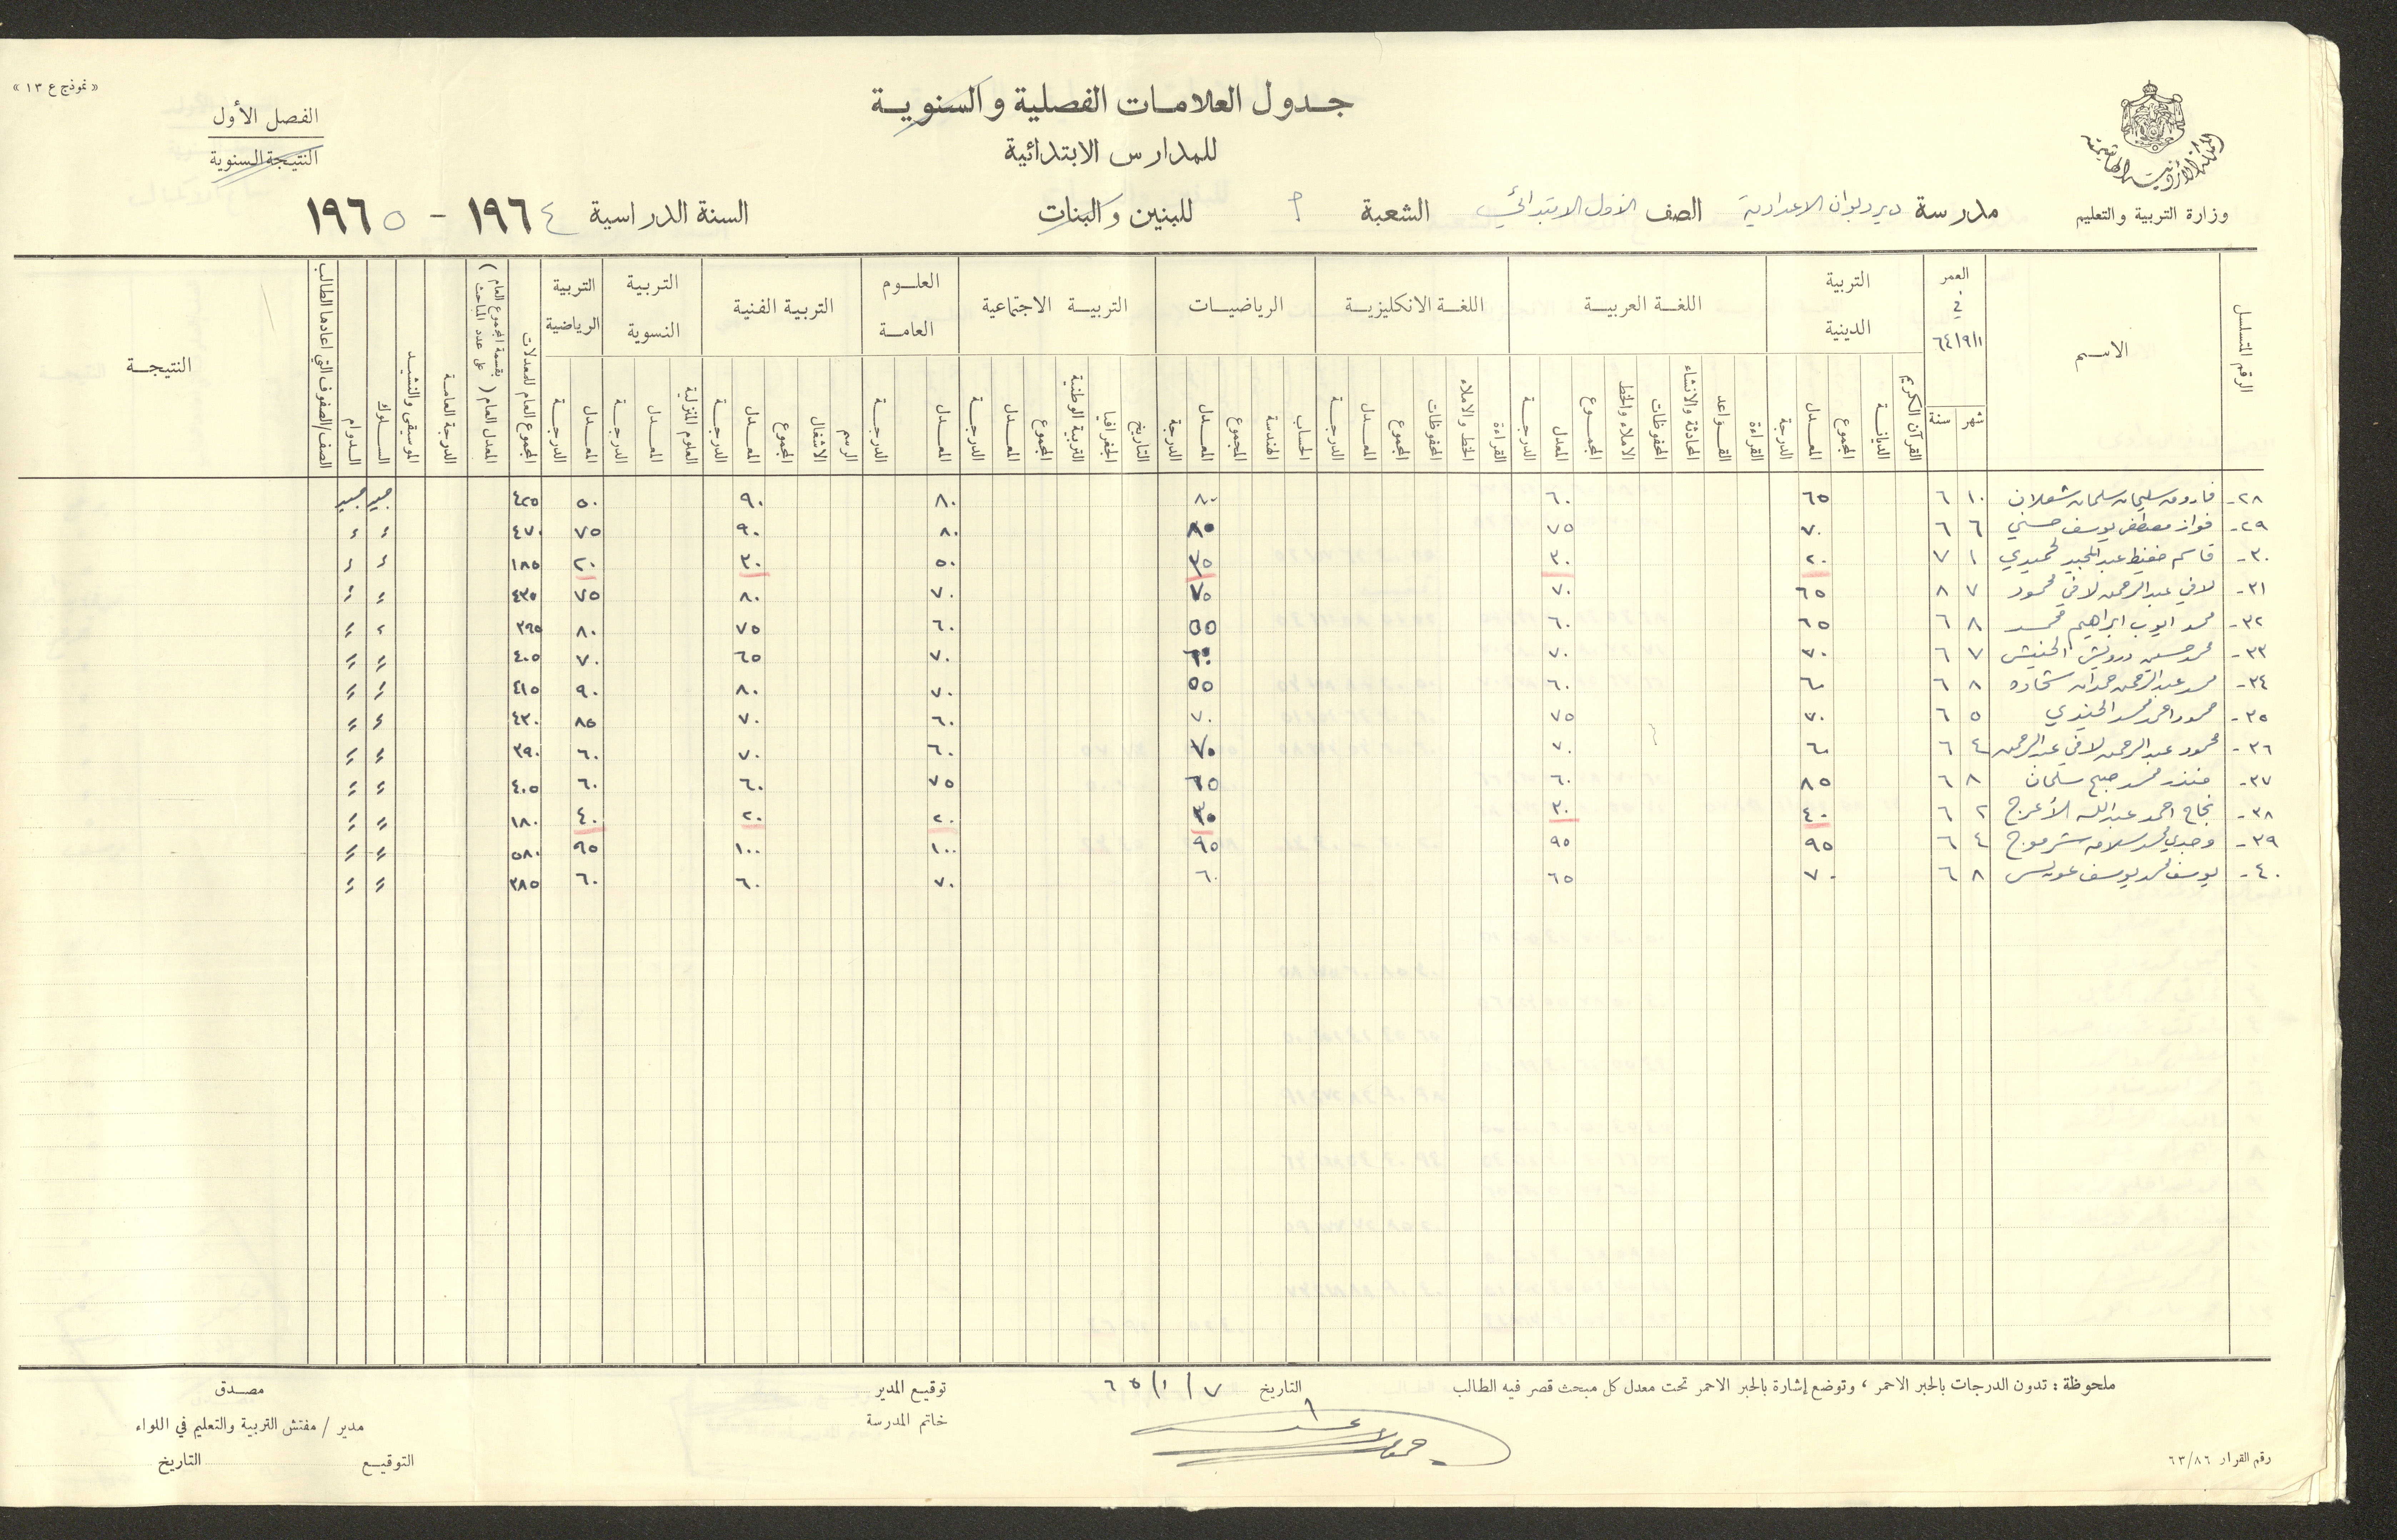 « نموذج ع ١٣ »
جدول العلامات الفصلية والسنوية
الفصل الأول
للمدارس الابتدائية
النتيجة السنوية
المملكة الأردنية الهاشمية
وزارة التربية والتعليم
مدرسة ديرديوان الاعدادية الصف الاول الابتدائي الشعبة للبنين والبنات السنة الدراسية ١٩٦٤ - ١٩٦٥
الرقم المتسلسل الاسم العمر في ٦٤/٩/١ التربية الدينية اللغة العربية اللغة الانكليزية الرياضيات التربية الاجتماعية العلوم العامة التربية الفنية التربية النسوية التربية الرياضية المجموع العام للمعدلات المعدل العام ( بقسمة المجموع العام على عدد المباحث ) الدرجة العامة الموسيقى والنشيد السلوك الدوام الصف/الصفوف التي اعادها الطالب النتيجة
شهر سنة القرآن الكريم الديانة المجموع المعدل الدرجة القراءة القواعد المحادثة والانشاء المحفوظات الاملاء والخط المجموع المعدل الدرجة القراءة الخط والاملاء المحفوظات المجموع المعدل الدرجة الحساب الهندسة المجموع المعدل الدرجة التاريخ الجغرافيا التربية الوطنية المجموع المعدل الدرجة المعدل الدرجة الرسم الاشغال المجموع المعدل الدرجة العلوم المنزلية المعدل الدرجة المعدل الدرجة
٢٨- فاروق سليمان سلمان شعلان ١٠ ٦ ٦٥ ٦٠ ٨٠ ٨٠ ٩٠ ٥٠ ٤٢٥ جيد جيد
٢٩- فواز مصطفى يوسف حسني ٦ ٦ ٧٠ ٧٥ ٨٥ ٨٠ ٩٠ ٧٥ ٤٧٠ ء ء
٣٠- قاسم حفيظ عبد المجيد حميدي ١ ٧ ٢٠ ٣٠ ٣٥ ٥٠ ٣٠ ٢٠ ١٨٥ ء ء
٣١- لافي عبدالرحمن لافي محمود ٧ ٨ ٦٥ ٧٠ ٧٠ ٧٠ ٨٠ ٧٥ ٤٣٥ ء ء
٣٢- محمد ايوب ابراهيم محمد ٨ ٦ ٦٥ ٦٠ ٥٥ ٦٠ ٧٥ ٨٠ ٣٩٥ ء ء
٣٣- محمد حسين درويش الحنيش ٧ ٦ ٧٠ ٧٠ ٦٠ ٧٠ ٦٥ ٧٠ ٤٠٥ ء ء
٣٤- محمد عبدالرحمن حمدان شحاده ٨ ٦ ٦٠ ٦٠ ٥٥ ٧٠ ٨٠ ٩٠ ٤١٥ ء ء
٣٥- محمود احمد محمد الجندي ٥ ٦ ٧٠ ٧٥ ٧٠ ٦٠ ٧٠ ٨٥ ٤٣٠ ء ء
٣٦- محمود عبدالرحمن لافي عبدالرحمن ٤ ٦ ٦٠ ٧٠ ٧٠ ٦٠ ٧٠ ٦٠ ٣٩٠ ء ء
٣٧- منذر محمد صبح سلمان ٨ ٦ ٨٥ ٦٠ ٦٥ ٧٥ ٦٠ ٦٠ ٤٠٥ ء ء
٣٨- نجاح احمد عبدالله الأعرج ٢ ٦ ٤٠ ٣٠ ٣٠ ٢٠ ٢٠ ٤٠ ١٨٠ ء ء
٣٩- وجدي محمد سلامه شرموج ٤ ٦ ٩٥ ٩٥ ٩٥ ١٠٠ ١٠٠ ٩٥ ٥٨٠ ء ء
٤٠- يوسف محمد يوسف عويس ٨ ٦ ٧٠ ٦٥ ٦٠ ٧٠ ٦٠ ٦٠ ٣٨٥ ء ء
ملحوظة : تدون الدرجات بالحبر الاحمر ، وتوضع إشارة بالحبر الاحمر تحت معدل كل مبحث قصر فيه الطالب التاريخ ٧/١/٦٥ توقيع المدير مصدق
خاتم المدرسة مدير / مفتش التربية والتعليم في اللواء
التوقيع التاريخ
رقم القرار ٦٣/٨٦